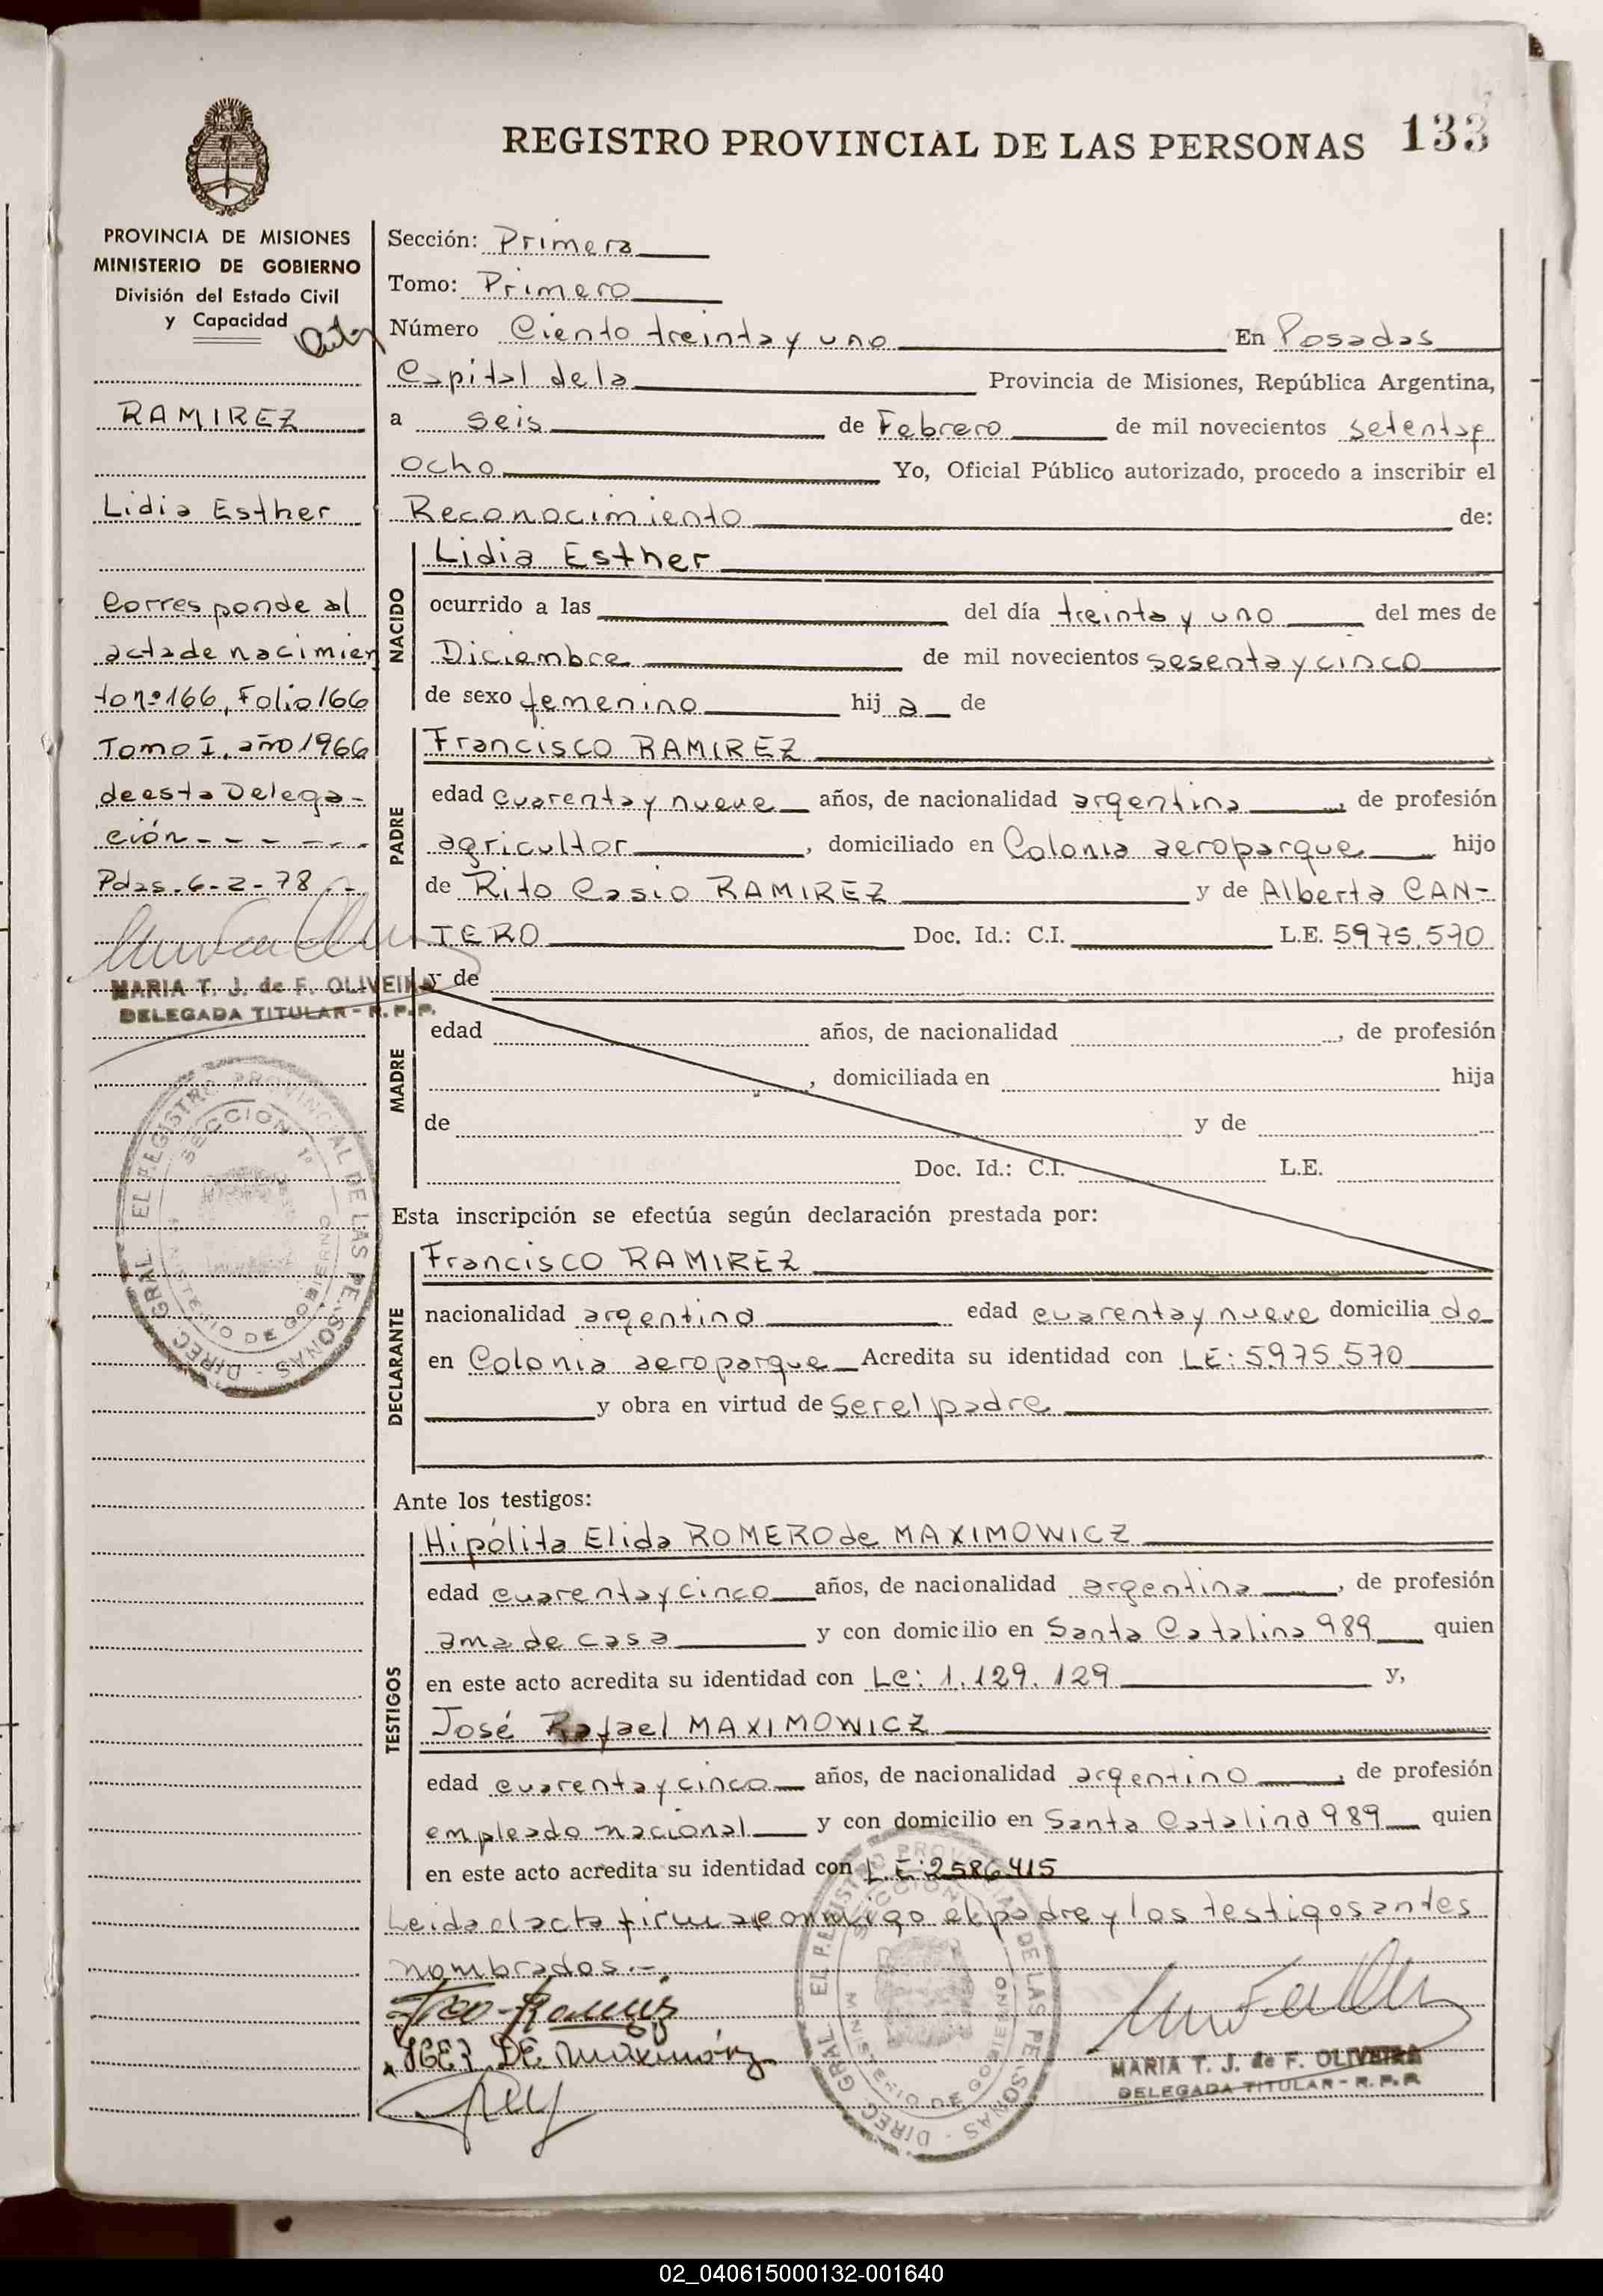 REGISTRO PROVINCIAL DE LAS PERSONAS 133
PROVINCIA DE MISIONES
MINISTERIO DE GOBIERNO
División del Estado Civil
y Capacidad
RAMIREZ
Lidia Esther
Corresponde al
acta de nacimien
to nº 166, Folio 166
Tomo I, año 1966
de esta Delega-
ción - - - - - -
Pdas. 6-2-78 - -
MARIA T. J. de F. OLIVEIRA
DELEGADA TITULAR - R. P. P.
DIREC. GRAL. EL REGISTRO PROVINCIAL DE LAS PERSONAS
SECCION 1ª
MINISTERIO DE GOBIERNO
Sección: Primera
Tomo: Primero
Número Ciento treinta y uno En Posadas
Capital de la Provincia de Misiones, República Argentina,
a seis de Febrero de mil novecientos setenta y
ocho Yo, Oficial Público autorizado, procedo a inscribir el
Reconocimiento de:
NACIDO
Lidia Esther
ocurrido a las del día treinta y uno del mes de
Diciembre de mil novecientos sesenta y cinco
de sexo femenino hij a de
PADRE
Francisco RAMIREZ
edad cuarenta y nueve años, de nacionalidad argentina, de profesión
agricultor, domiciliado en Colonia aeroparque hijo
de Rito Casio RAMIREZ y de Alberta CAN-
TERO Doc. Id.: C.I. L.E. 5975.570
MADRE
y de
edad años, de nacionalidad , de profesión
, domiciliada en hija
de y de
Doc. Id.: C.I. L.E.
Esta inscripción se efectúa según declaración prestada por:
DECLARANTE
Francisco RAMIREZ
nacionalidad argentina edad cuarenta y nueve domicilia do
en Colonia aeroparque Acredita su identidad con LE: 5.975.570
y obra en virtud de ser el padre
Ante los testigos:
TESTIGOS
Hipólita Elida ROMERO de MAXIMOWICZ
edad cuarenta y cinco años, de nacionalidad argentina, de profesión
ama de casa y con domicilio en Santa Catalina 989 quien
en este acto acredita su identidad con LC: 1.129.129 y,
José Rafael MAXIMOWICZ
edad cuarenta y cinco años, de nacionalidad argentino, de profesión
empleado nacional y con domicilio en Santa Catalina 989 quien
en este acto acredita su identidad con L.E: 2586415
Leida el acta firma conmigo el padre y los testigos antes
nombrados.-
DIREC. GRAL. EL REGISTRO PROVINCIAL DE LAS PERSONAS
SECCION
MINISTERIO DE GOBIERNO
MARIA T. J. de F. OLIVEIRA
DELEGADA TITULAR - R. P. P.
02_040615000132-001640